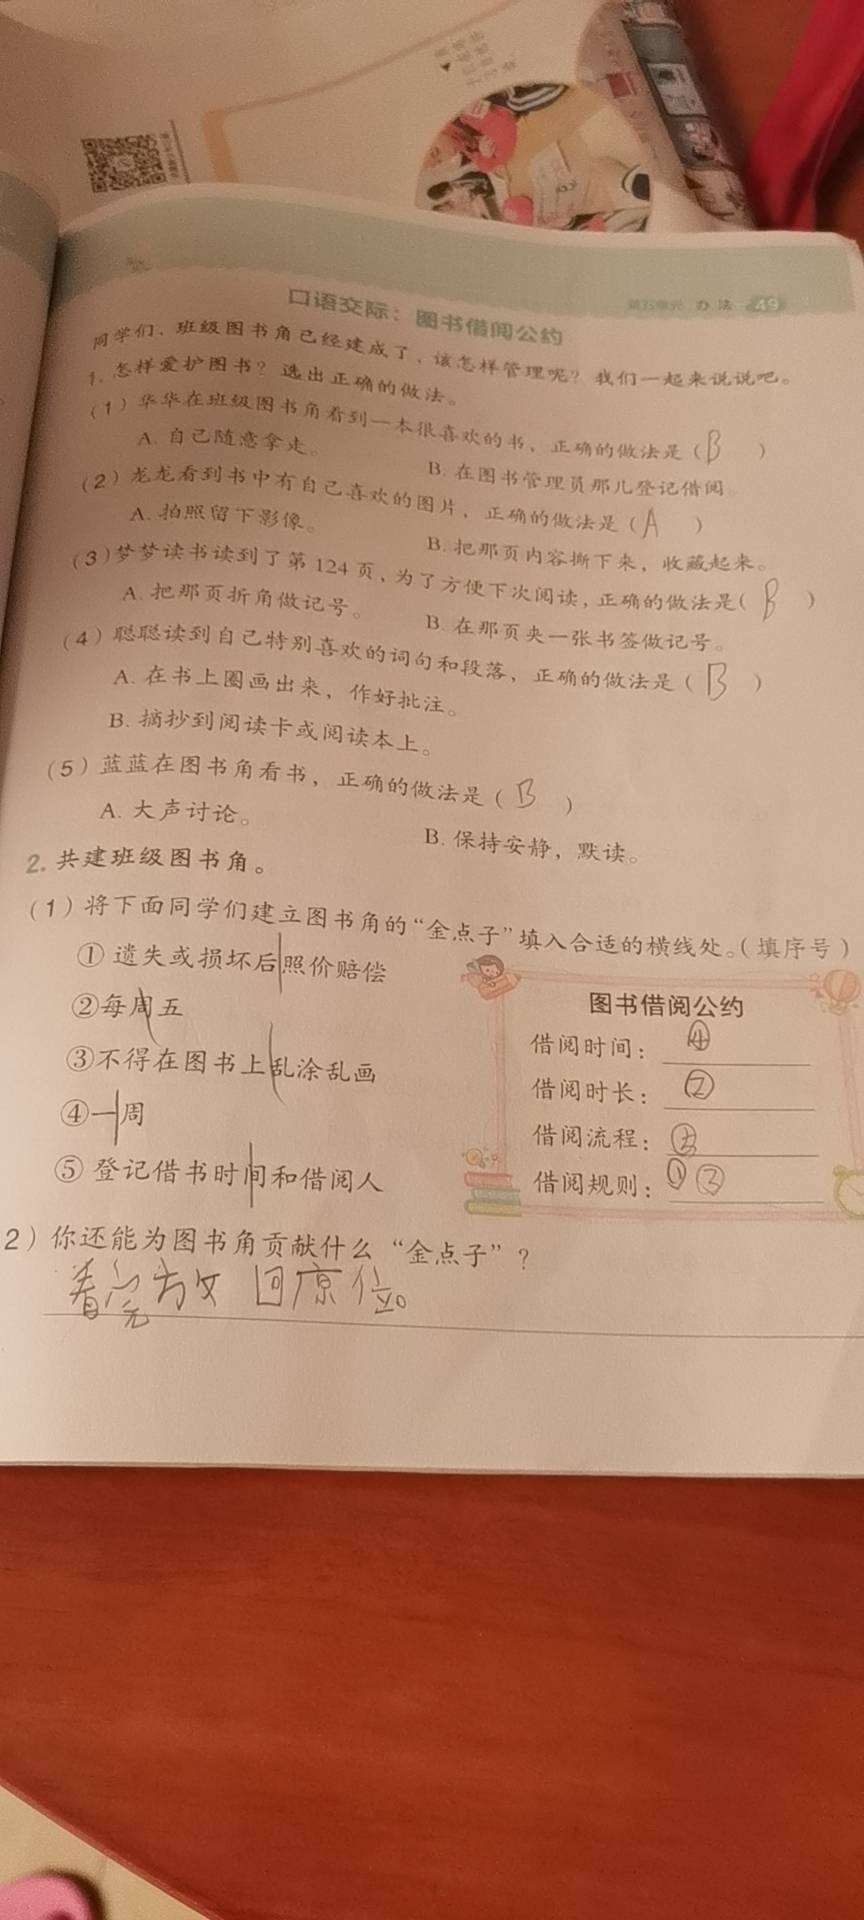 第五单元 办法 49
口语交际：图书借阅公约
同学们，班级图书角已经建成了，该怎样管理呢？我们一起来说说吧。
1. 怎样爱护图书？选出正确的做法。
（1）华华在班级图书角看到一本很喜欢的书，正确的做法是（B）
A. 自己随意拿走。 B. 在图书管理员那儿登记借阅。
（2）龙龙看到书中有自己喜欢的图片，正确的做法是（A）
A. 拍照留下影像。 B. 把那页内容撕下来，收藏起来。
（3）梦梦读书读到了第124页，为了方便下次阅读，正确的做法是（B）
A. 把那页折角做记号。 B. 在那页夹一张书签做记号。
（4）聪聪读到自己特别喜欢的词句和段落，正确的做法是（B）
A. 在书上圈画出来，作好批注。
B. 摘抄到阅读卡或阅读本上。
（5）蓝蓝在图书角看书，正确的做法是（B）
A. 大声讨论。 B. 保持安静，默读。
2. 共建班级图书角。
（1）将下面同学们建立图书角的“金点子”填入合适的横线处。（填序号）
①遗失或损坏后照价赔偿
②每周五
③不得在图书上乱涂乱画
④一周
⑤登记借书时间和借阅人
图书借阅公约
借阅时间：④
借阅时长：②
借阅流程：⑤
借阅规则：①③
2）你还能为图书角贡献什么“金点子”？
看完放回原位。